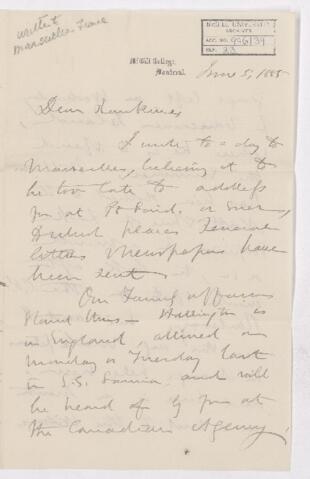 written to
Marseilles, France
McGILL UNIVERSITY
ARCHIVES
ACC. NO. 996/34
REF. 23
McGill College,
Montreal.
June 5, 1885
Dear
I write to a day to
Marseilles, believing it to
be too late to address
you at Pt Said. or Suez,
to which places several
letters & newspapers have
been sent
Our affairs
stand thus —
is
in England, arrived on
Monday or Tuesday last
in S.S. Sarnia and will
be heard of by you at
the Canadian Agency,